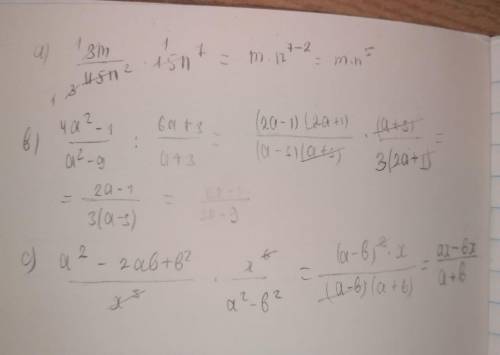 a) 3m / 45n² · 15n⁷ = m·n⁷⁻² = m·n⁵
b) 4a² - 1 / a² - 9 : 6a + 3 / a + 3 = (2a-1)(2a+1) / (a-3)(a+3) · (a+3) / 3(2a+1) =
= 2a-1 / 3(a-3) =
c) a² - 2ab + b² / x⁵ · x⁶ / a² - b² = (a-b)² · x / (a-b)(a+b) = ax - bx / a+b